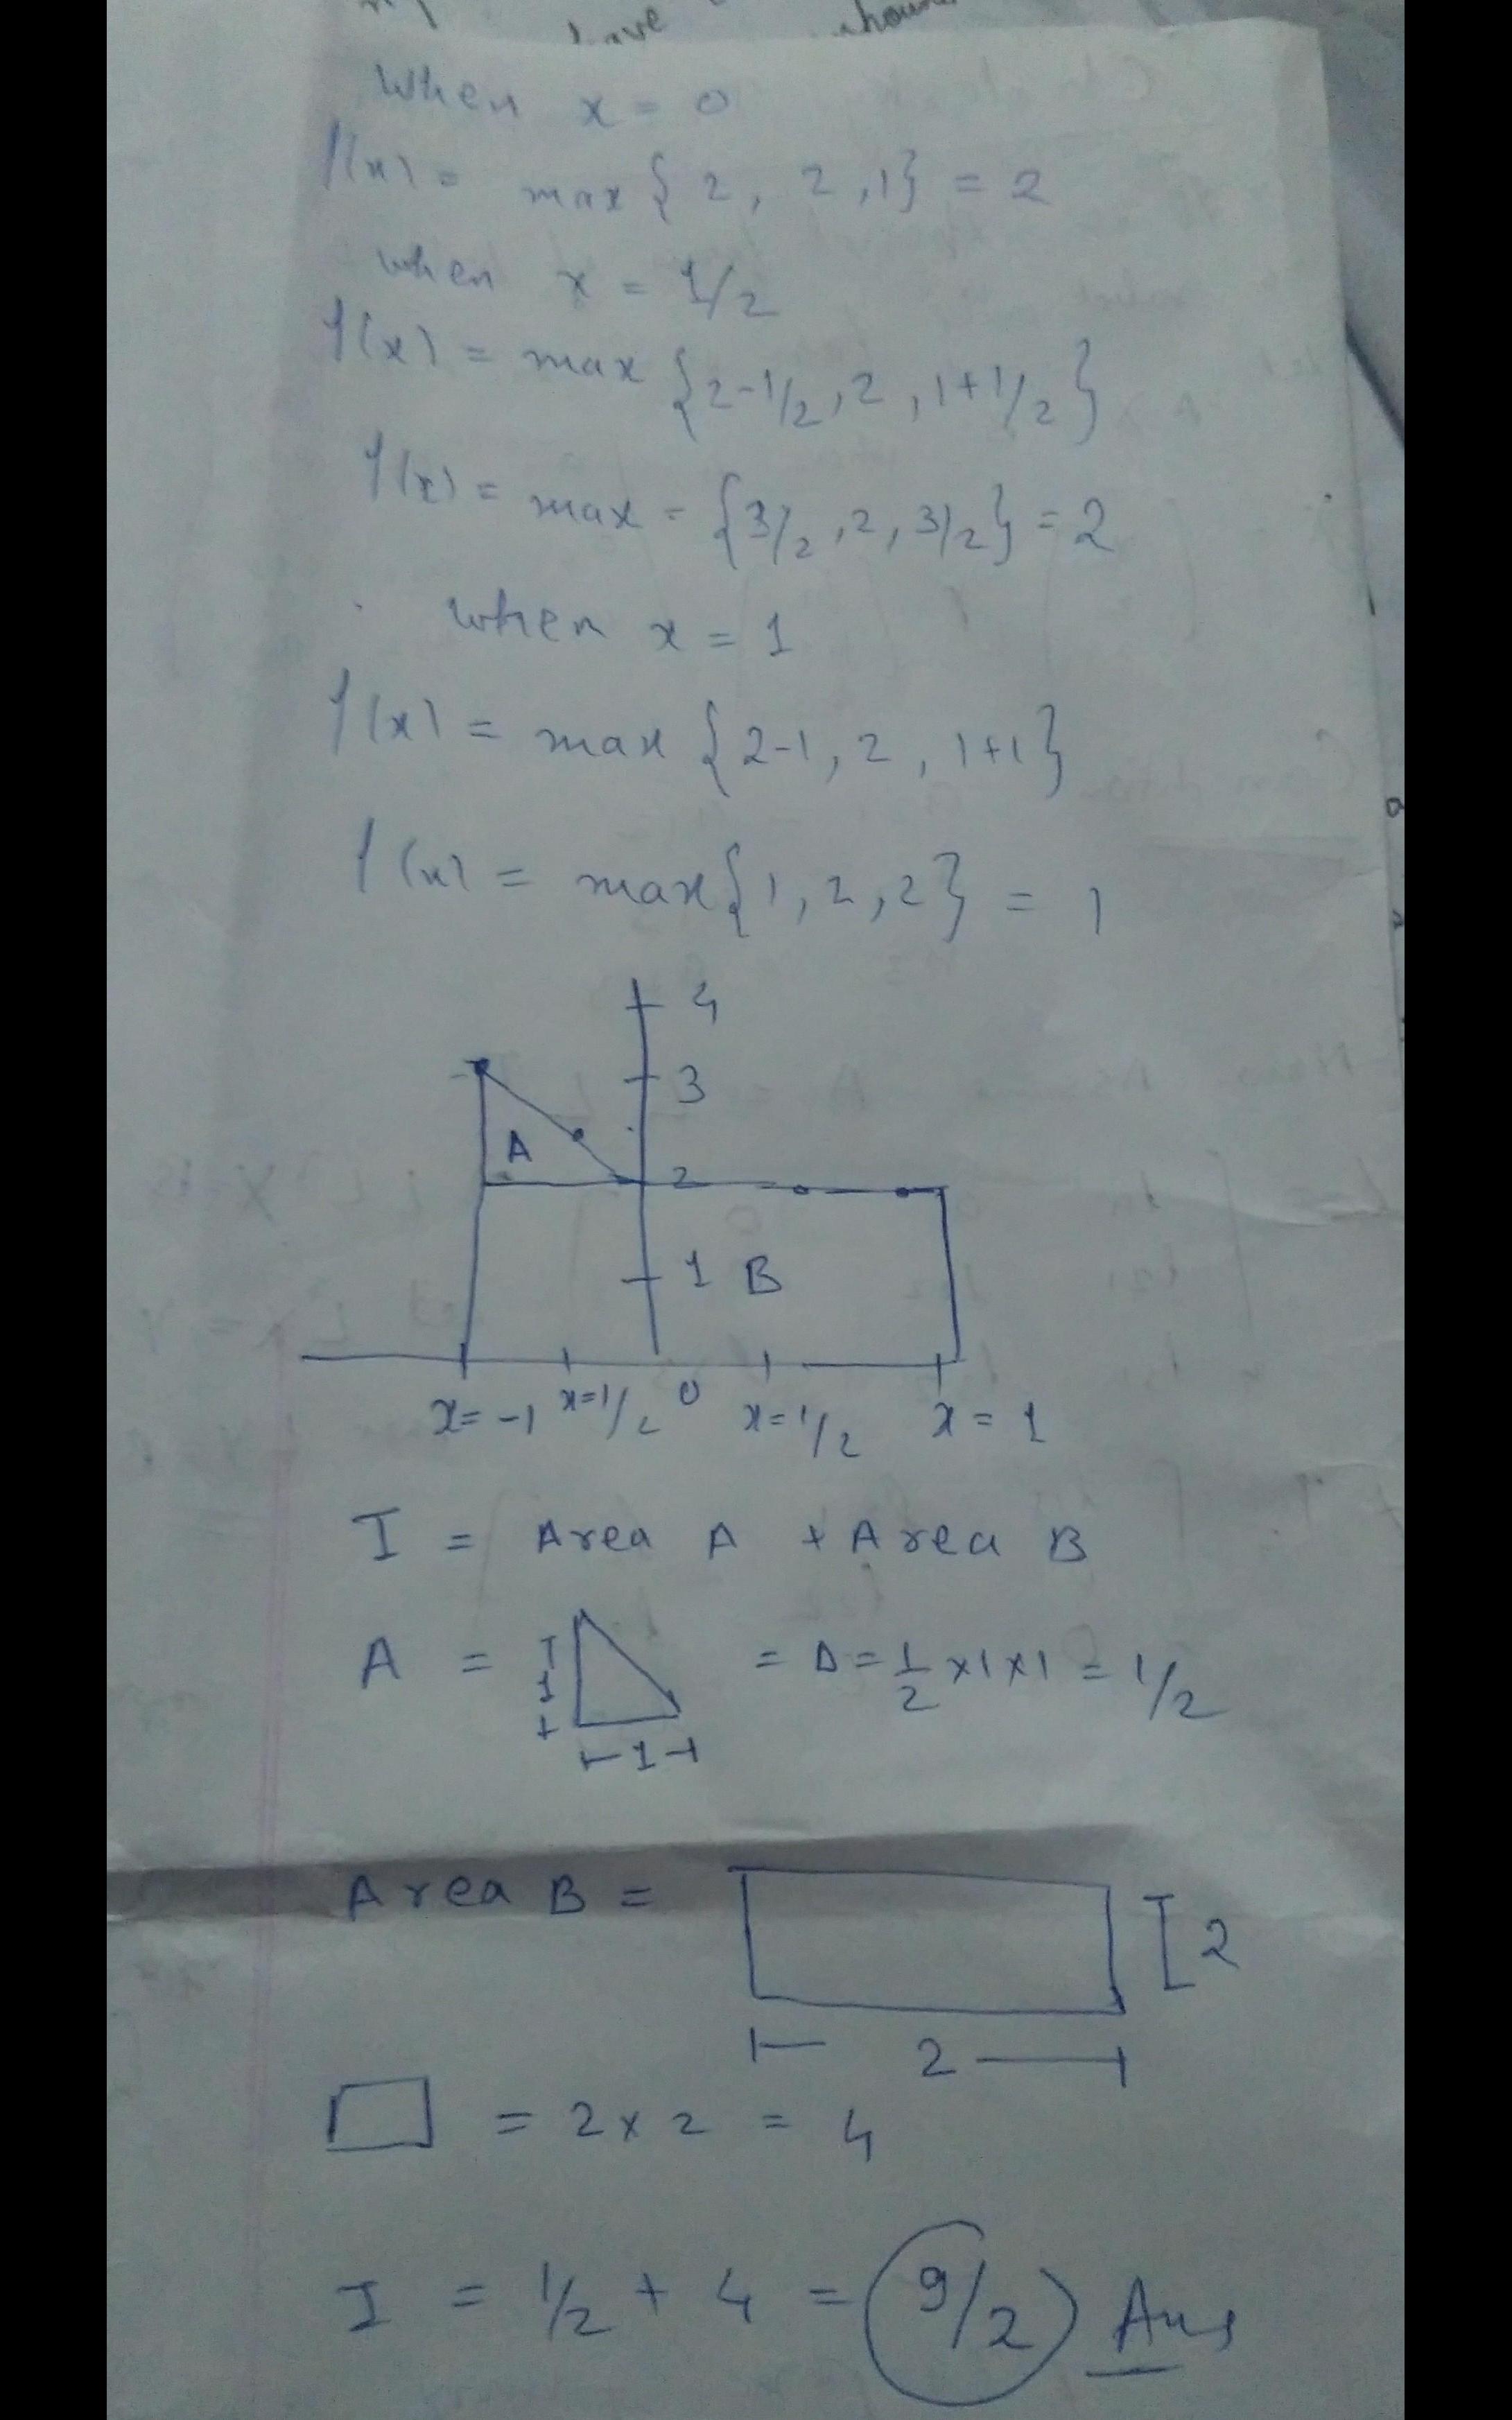 have
When x = 0
f(x) = max { 2, 2, 1} = 2
when x = 1/2
f(x) = max {2-1/2, 2, 1+1/2}
f(x) = max = {3/2, 2, 3/2} = 2
when x = 1
f(x) = max {2-1, 2, 1+1}
f(x) = max{1, 2, 2} = 1
4
3
A
2
1 B
x= -1 x=1/2 0 x=1/2 x = 1
I = Area A + Area B
A = 1 1 = Δ = 1/2 x1x1 = 1/2
Area B = 2
2
= 2 x 2 = 4
I = 1/2 + 4 = 9/2 Ans